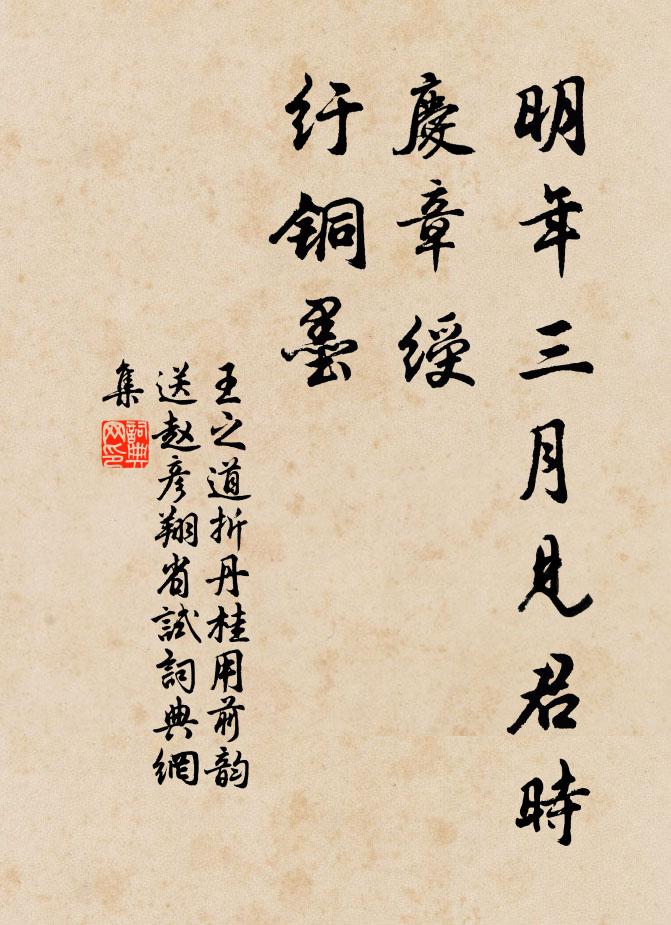 明年三月見君時
慶章綬
纡铜墨
王之道折丹桂用前韵
送赵彦翔省試詞典網
集
詞典
网印